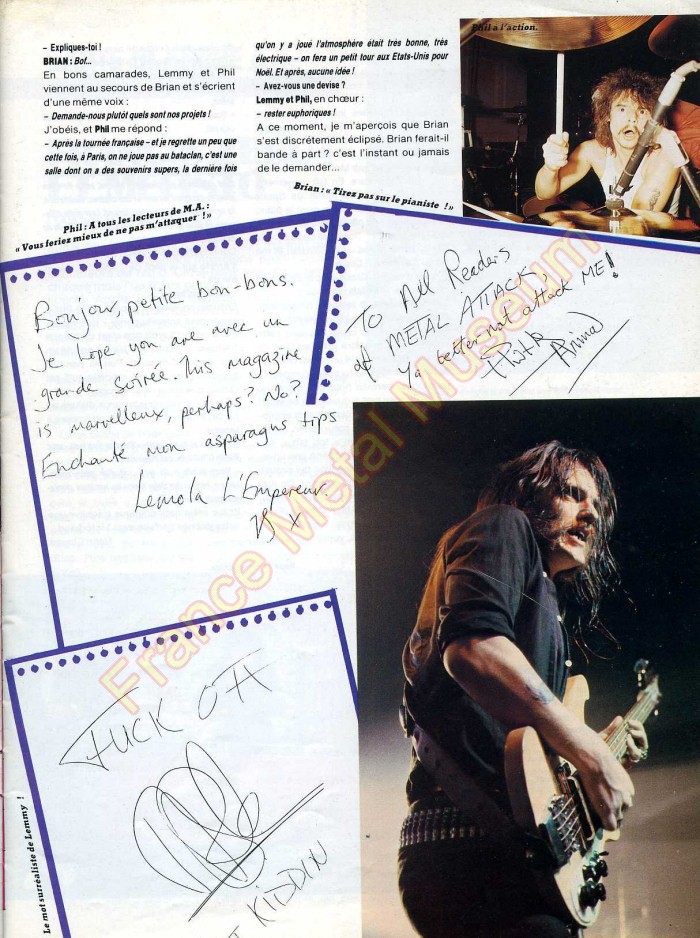 – Expliques-toi !
BRIAN : Bof...
En bons camarades, Lemmy et Phil
viennent au secours de Brian et s'écrient
d'une même voix :
– Demande-nous plutôt quels sont nos projets !
J'obéis, et Phil me répond :
– Après la tournée française – et je regrette un peu que
cette fois, à Paris, on ne joue pas au bataclan, c'est une
salle dont on a des souvenirs supers, la dernière fois
qu'on y a joué l'atmosphère était très bonne, très
électrique – on fera un petit tour aux Etats-Unis pour
Noël. Et après, aucune idée !
– Avez-vous une devise ?
Lemmy et Phil, en chœur :
– rester euphoriques !
A ce moment, je m'aperçois que Brian
s'est discrètement éclipsé. Brian ferait-il
bande à part ? c'est l'instant ou jamais
de le demander...
Phil a l'action.
Phil : A tous les lecteurs de M.A. :
« Vous feriez mieux de ne pas m'attaquer !»
Brian : « Tirez pas sur le pianiste !»
Bonjour, petite bon-bons.
Je hope you are avec un
grande soirée. This magazine
is marvelleux, perhaps? No?
Enchanté mon asparagus tips
Lemola L'Empereur.
X
To All Readers
of METAL ATTACK,
ya better not attack ME!
Philthy
Animal
FUCK OFF
KIDDIN
Le mot surréaliste de Lemmy !
France Metal Museum